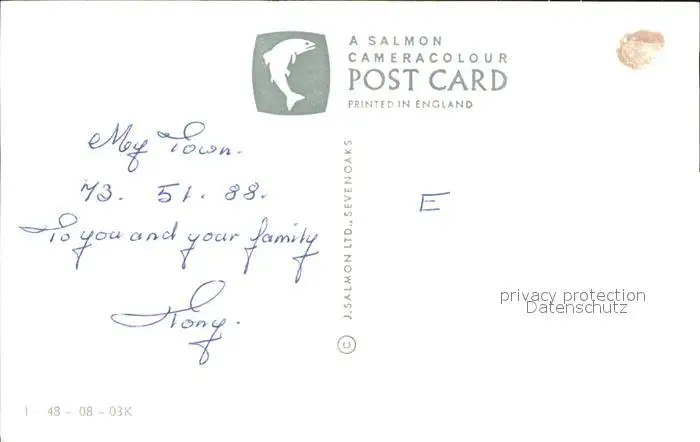 A SALMON
CAMERACOLOUR
POST CARD
PRINTED IN ENGLAND
My Town.
73. 51. 88.
To you and your family
Tony.
© J. SALMON LTD., SEVENOAKS
E
privacy protection
Datenschutz
1 - 48 - 08 - 03K